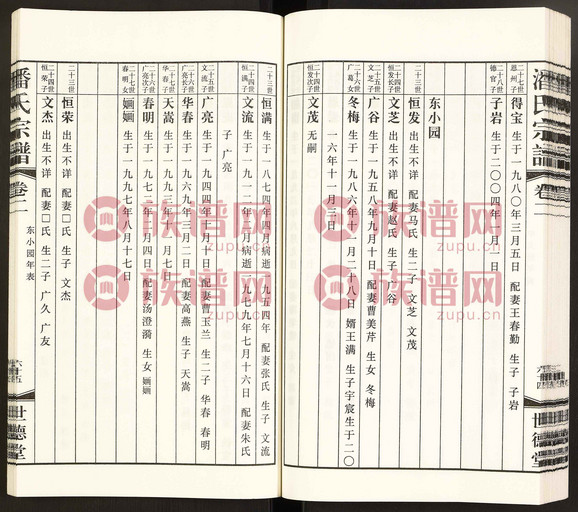 潘氏宗谱
卷二
世德堂
二十七世
恩州子
得宝 生于一九八〇年三月五日 配妻王春勤 生子 子岩
二十八世
德官子
子岩 生于二〇〇四年一月二日
东小园
二十三世
恒发 出生不详 配妻马氏 生二子 文芝 文茂
二十四世
恒发长子
文芝 出生不详 配妻赵氏 生子 广谷
二十五世
文芝子
广谷 生于一九五八年九月十日 配妻曹美芹 生女 冬梅
二十六世
广葛女
冬梅 生于一九八六年十一月二十八日 婿王满 生子宇宸生于二〇
一六年十一月三日
二十四世
恒发次子
文茂 无嗣
二十三世
恒满 生于一八七四年四月病逝一九五四年 配妻张氏 生子 文流
二十四世
恒满子
文流 生于一九二四年四月病逝一九七九年七月十六日 配妻朱氏
子 广亮
二十五世
文流子
广亮 生于一九四四年十月十日 配妻曹玉兰 生二子 华春 春明
二十六世
广亮长子
华春 生于一九六三年二月二日 配妻高燕 生子 天嵩
二十七世
华春子
天嵩 生于一九九三年
二十六世
广亮次子
春明 生于一九七二年四月四日 配妻汤澄漪 生女
二十七世
春明女
生于一九九七年八月十七日
二十三世
恒荣 出生不详 配妻口氏 生子 文杰
二十四世
恒荣子
文杰 出生不详 配妻口氏 生二子 广久 广友
潘氏宗谱
卷二
东小园年表
世德堂
族谱网
zupu.cn
族谱网
zupu.cn
族谱网
zupu.cn
族谱网
zupu.cn